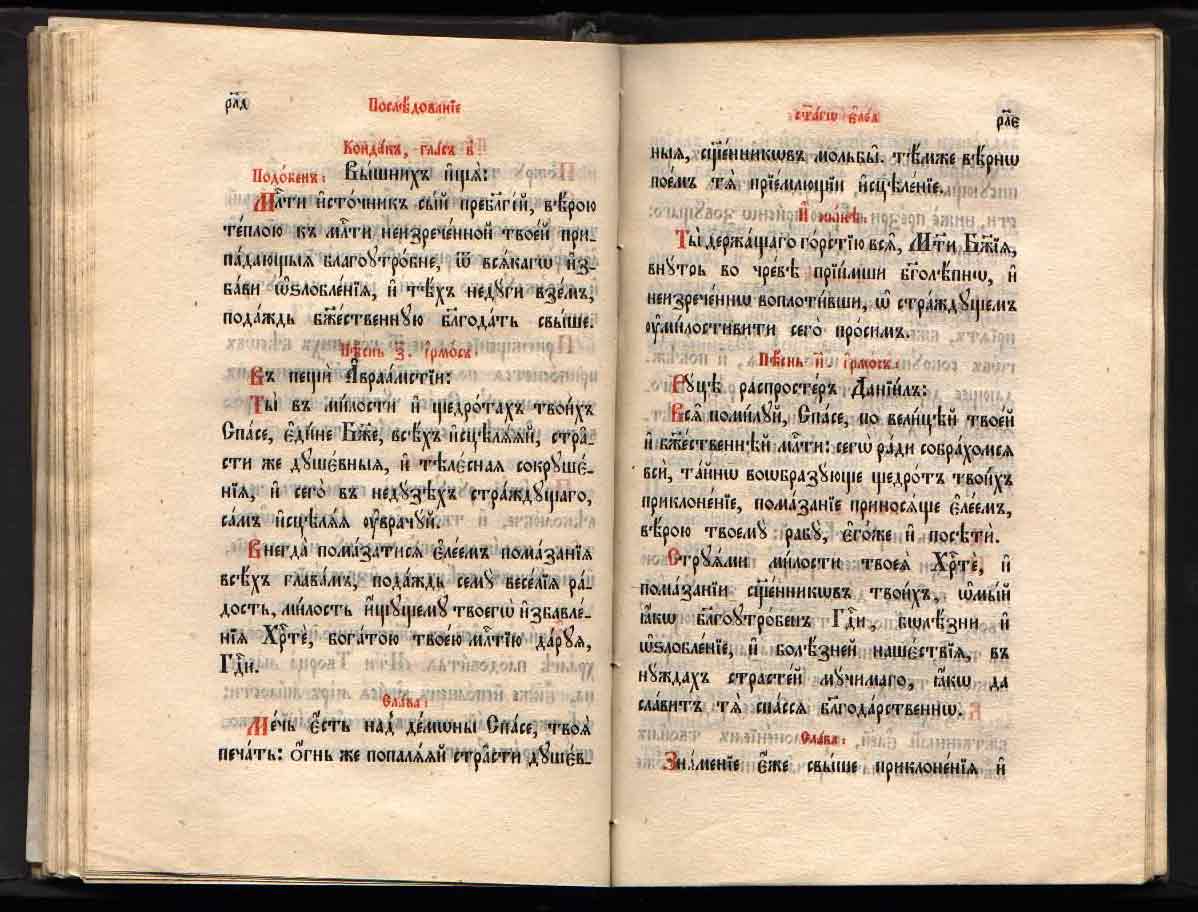 рл҃д Послѣ́дованіе
Конда́къ, гла́съ в҃:
Подо́бенъ: Вы́шнихъ ищѧ̀:
Млⷭ҇ти и҆сто́чникъ сы́й пребл҃гі́й, вѣ́рою
те́плою къ млⷭ҇ти неизрече́нной твое́й при-
па́дающыѧ благоꙋтро́бне, ѿ всѧ́кагѡ и҆з-
ба́ви ѡ҆ѕлобле́нїѧ, и҆ тѣ́хъ неду́ги взе́мъ,
пода́ждь бж҃е́ственную бл҃года́ть свы́ше.
Пѣ́снь з҃. І҆рмо́съ:
Въ пещѝ А҆враа́мстїи:
Ты̀ въ ми́лости и҆ щедро́тахъ твои́хъ
Спа́се, є҆ди́не Бж҃е, всѣ́хъ и҆сцѣлѧ́ѧй, стра̑-
сти же дꙋше́вныѧ, и҆ тѣлє́снаѧ сокрꙋшє́-
нїѧ, и҆ сего̀ въ недꙋ́зѣхъ стра́ждꙋщаго,
са́мъ и҆сцѣлѧ́ѧ ᲂу҆врачꙋ́й.
Внегда̀ пома́затисѧ є҆ле́емъ пома́занїѧ
всѣ́хъ глава́мъ, пода́ждь семꙋ̀ весе́лїѧ ра́-
дость, ми́лость и҆́щꙋщемꙋ твоегѡ̀ и҆збавле́-
нїѧ Хрⷭ҇тѐ, бога́тою твое́ю млⷭ҇тїю да́рꙋѧ,
Гдⷭ҇и.
Сла́ва:
Ме́чь є҆́сть над̾ де́мѡны Спа́се, твоѧ̀
печа́ть: ѻ҆́гнь же попалѧ́ѧй стра̑сти дꙋшє́в-
ст҃а́гѡ є҆ле́а рл҃є
ныѧ, сщ҃е́нникѡвъ мольбы̑. тѣ́мже вѣ́рнѡ
пое́мъ тѧ̀ прїе́млющїи и҆сцѣле́нїе.
И҆ ны́нѣ:
Ты̀ держа́щаго го́рстїю всѧ̑, Мт҃и Бж҃їѧ,
внꙋ́трь во чре́вѣ прїи́мши бг҃олѣ́пнѡ, и҆
неизрече́ннѡ вопло́тивши, ѡ҆ стра́ждꙋщемъ
ᲂу҆ми́лостивити сего̀ про́симъ.
Пѣ́снь и҃. І҆рмо́съ:
Рꙋ́цѣ распросте́ръ Данїи́лъ:
Всѧ̑ поми́лꙋй, Спа́се, по вели́цѣй твое́й
и҆ бж҃е́ственнѣй млⷭ҇ти: сегѡ̀ ра́ди собра́хомсѧ
всѝ, та́йнѡ воѡбразꙋ́юще щедро́тъ твои́хъ
приклоне́нїе, пома́занїе приносѧ́ще є҆ле́емъ,
вѣ́рою твоемꙋ̀ рабꙋ̀, є҆го́же и҆ посѣтѝ.
Стрꙋѧ́ми ми́лости твоеѧ̀ Хрⷭ҇тѐ, и҆
пома́занїи сщ҃е́нникѡвъ твои́хъ, ѡ҆мы́й
ꙗ҆́кѡ бл҃гоꙋтро́бенъ Гдⷭ҇и, бѡлѣ́зни и҆
ѡ҆ѕлоблє́нїѧ, и҆ болѣ́зней наше́ствїѧ, въ
нꙋ́ждахъ страсте́й мꙋчи́маго, ꙗ҆́кѡ да
сла́витъ тѧ̀ спа́ссѧ бл҃года́рственнѡ.
Сла́ва:
Зна́менїе є҆́же свы́ше приклоне́нїѧ и҆